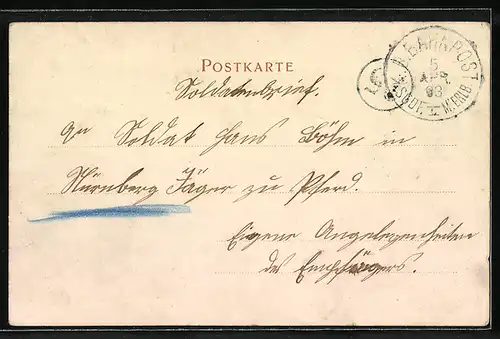 POSTKARTE
Soldatenbrief.
K.B. BAHNPOST
5
APR.
03
An Soldat Hans Böhm in
Nürnberg Jäger zu Pferd.
Eigene Angelegenheiten
des Empfängers.